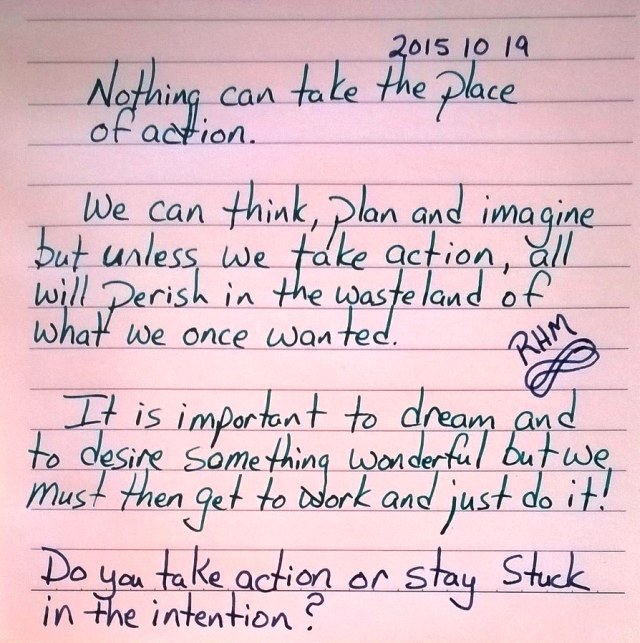 2015 10 19
Nothing can take the place
of action.
We can think, plan and imagine
but unless we take action, all
will perish in the wasteland of
what we once wanted.
RHM
It is important to dream and
to desire something wonderful but we
must then get to work and just do it!
Do you take action or stay stuck
in the intention?